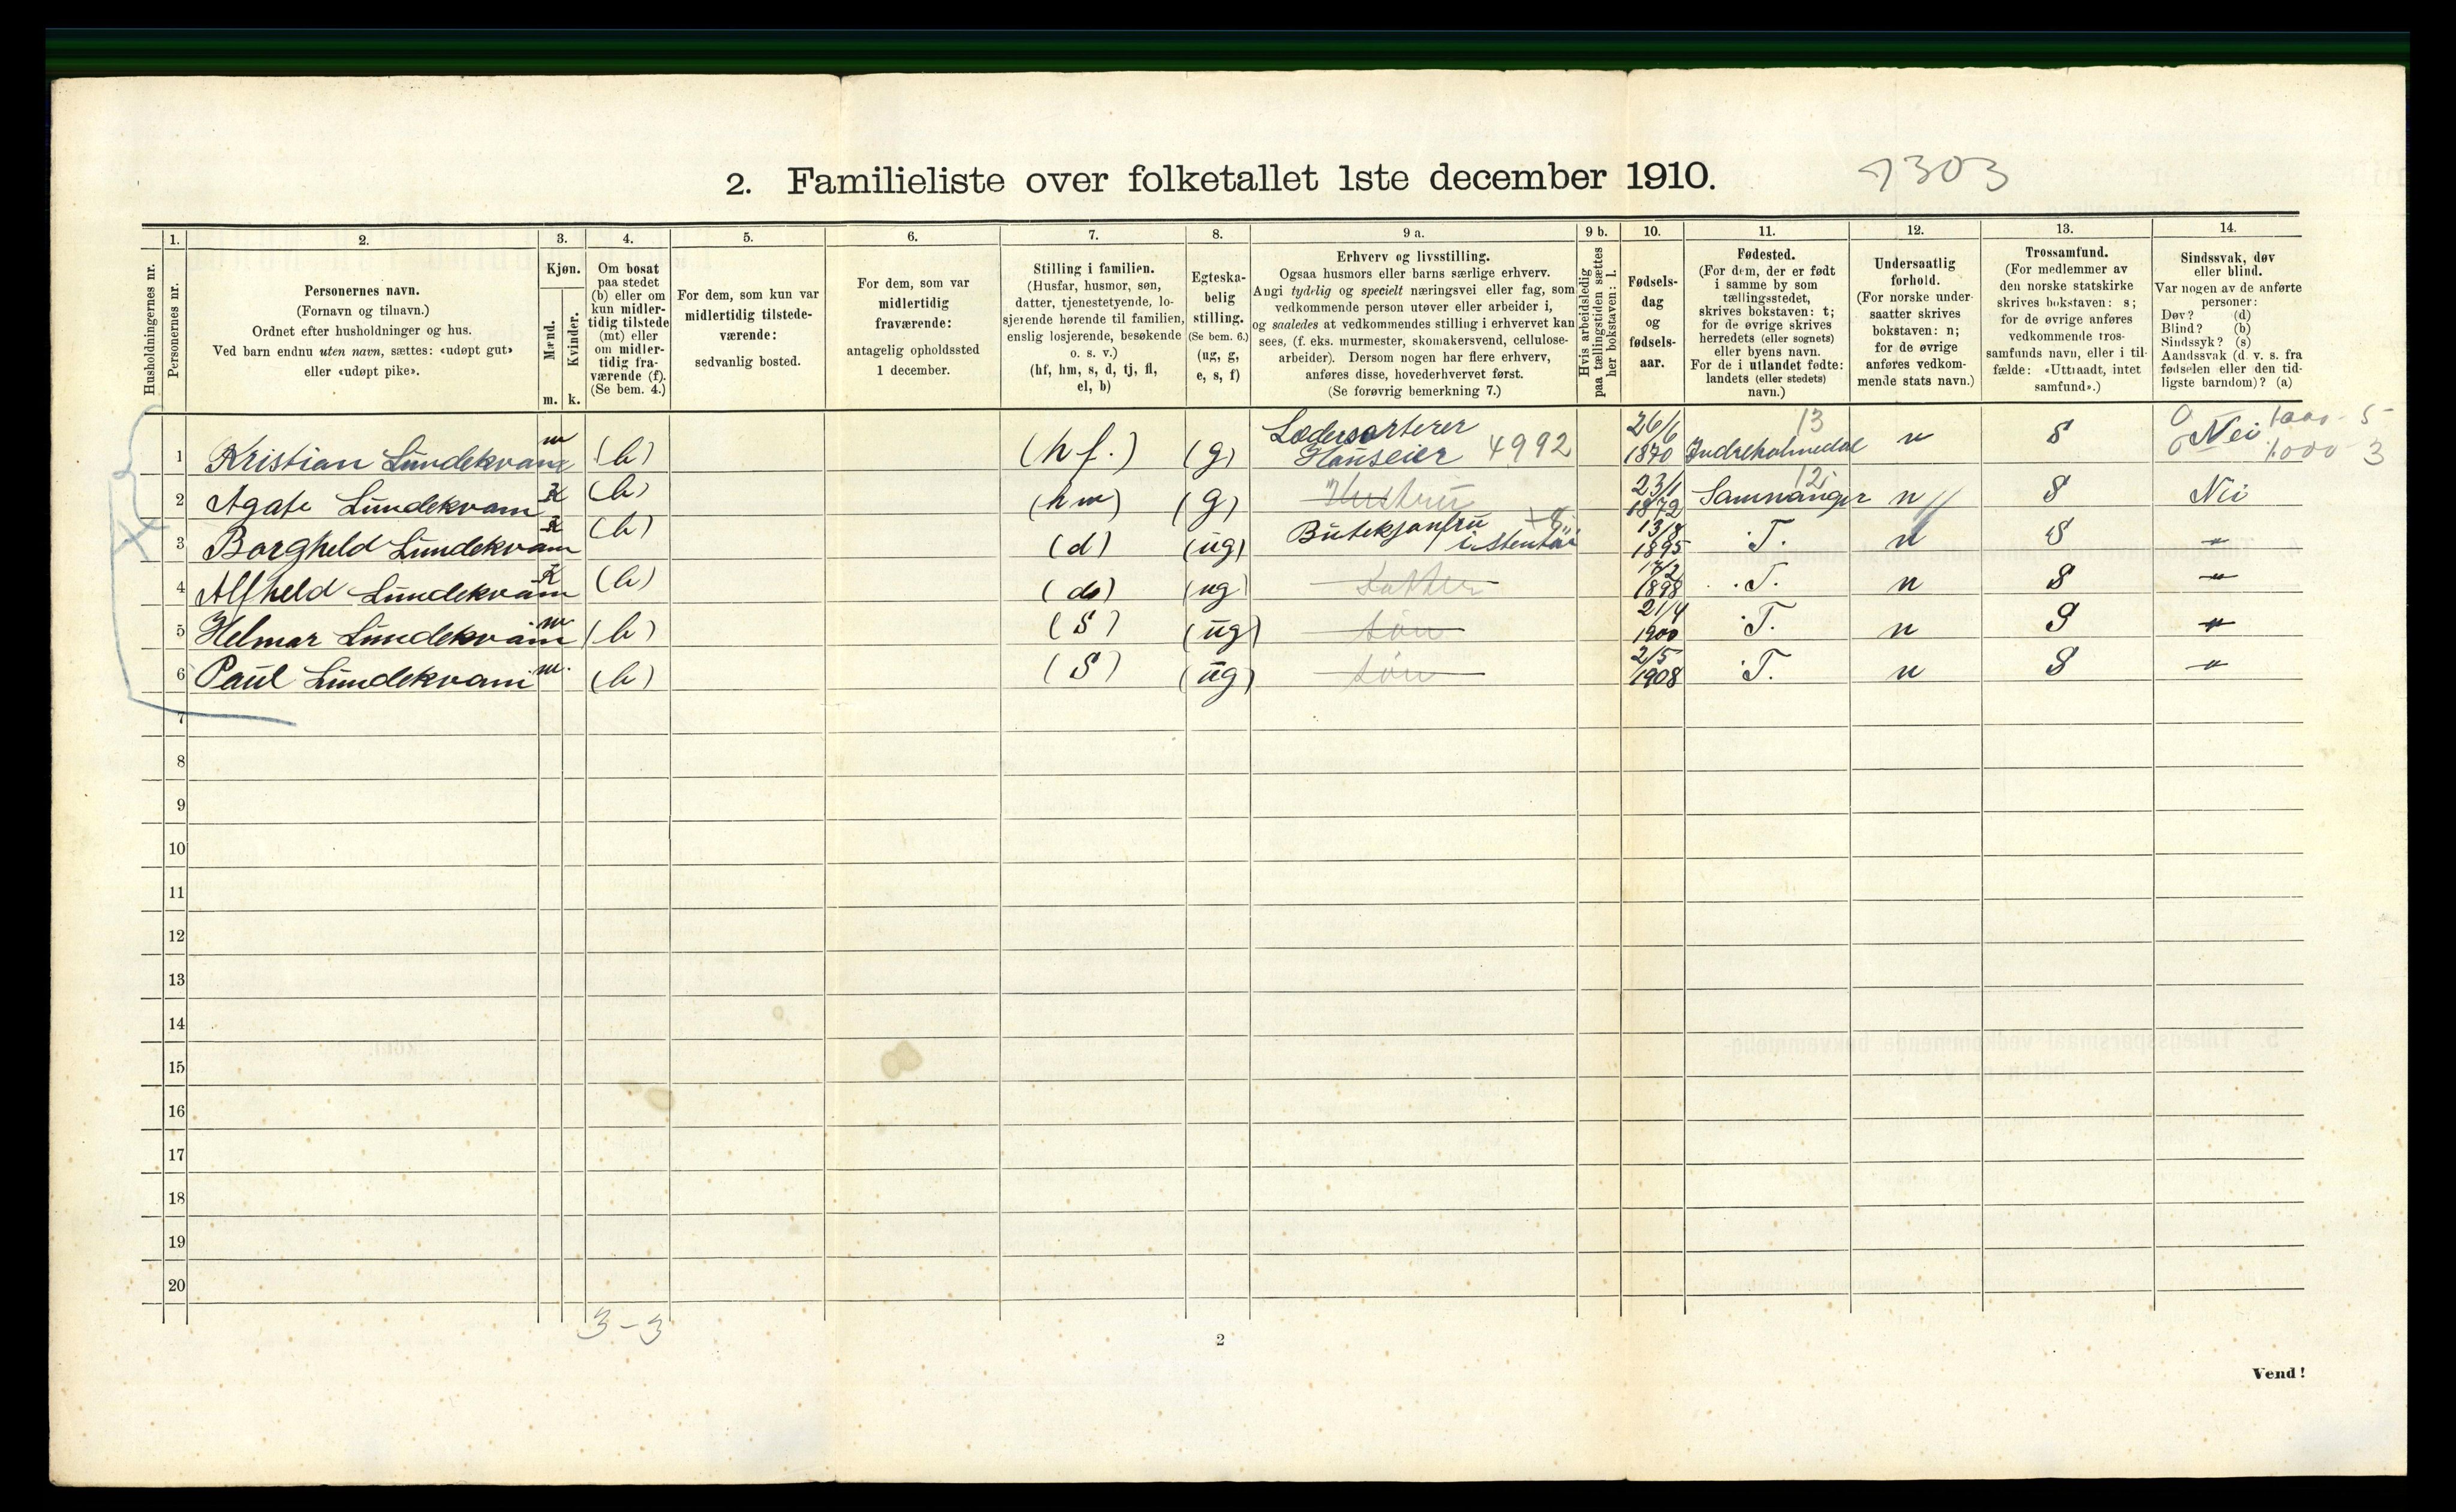 2. Familieliste over folketallet 1ste december 1910.
7303
Husholdningernes nr.
1.
Personernes nr.
2.
Personernes navn.
(Fornavn og tilnavn.)
Ordnet efter husholdninger og hus.
Ved barn endnu uten navn, sættes: «udøpt gut»
eller «udøpt pike».
3.
Kjøn.
Mænd.
Kvinder.
m. k.
4.
Om bosat
paa stedet
(b) eller om
kun midler-
tidig tilstede
(mt) eller
om midler-
tidig fra-
værende (f).
(Se bem. 4.)
5.
For dem, som kun var
midlertidig tilstede-
værende:
sedvanlig bosted.
6.
For dem, som var
midlertidig
fraværende:
antagelig opholdssted
1 december.
7.
Stilling i familien.
(Husfar, husmor, søn,
datter, tjenestetyende, lo-
sjerende hørende til familien,
enslig losjerende, besøkende
o. s. v.)
(hf, hm, s, d, tj, fl,
el, b)
8.
Egteska-
belig
stilling.
(Se bem. 6.)
(ug, g,
e, s, f)
9 a.
Erhverv og livsstilling.
Ogsaa husmors eller barns særlige erhverv.
Angi tydelig og specielt næringsvei eller fag, som
vedkommende person utøver eller arbeider i,
og saaledes at vedkommendes stilling i erhvervet kan
sees, (f. eks. murmester, skomakersvend, cellulose-
arbeider). Dersom nogen har flere erhverv,
anføres disse, hovederhvervet først.
(Se forøvrig bemerkning 7.)
9 b.
Hvis arbeidsledig
paa tællingstiden sættes
her bokstaven: l.
10.
Fødsels-
dag
og
fødsels-
aar.
11.
Fødested.
(For dem, der er født
i samme by som
tællingsstedet,
skrives bokstaven: t;
for de øvrige skrives
herredets (eller sognets)
eller byens navn.
For de i utlandet fødte:
landets (eller stedets)
navn.)
12.
Undersaatlig
forhold.
(For norske under-
saatter skrives
bokstaven: n;
for de øvrige
anføres vedkom-
mende stats navn.)
13.
Trossamfund.
(For medlemmer av
den norske statskirke
skrives bokstaven: s;
for de øvrige anføres
vedkommende tros-
samfunds navn, eller i til-
fælde: «Uttraadt, intet
samfund».)
14.
Sindssvak, døv
eller blind.
Var nogen av de anførte
personer:
Døv? (d)
Blind? (b)
Sindssyk? (s)
Aandssvak (d. v. s. fra
fødselen eller den tid-
ligste barndom)? (a)
1 Kristian Lundekvam m (b) (hf.) (g) Lædersorterer Hauseier 4992 26/6 1870 Indreholmedal 13 n S Nei 1000 - 5 1000 3
2 Agate Lundekvam K (b) (hm) (g) Hustru 23/1 1872 Samnanger 12 n S Nei
3 Borgheld Lundekvam K (b) (d) (ug) Butekjomfru i stentøi 13/8 1895 T. n S "
4 Alfheld Lundekvam K (b) (d) (ug) Datter 17/2 1898 T. n S "
5 Helmar Lundekvam m (b) (S) (ug) søn 21/4 1900 T. n S "
6 Paul Lundekvam m. (b) (S) (ug) søn 2/5 1908 T. n S "
7
8
9
10
11
12
13
14
15
16
17
18
19
20
3-3
2
Vend!